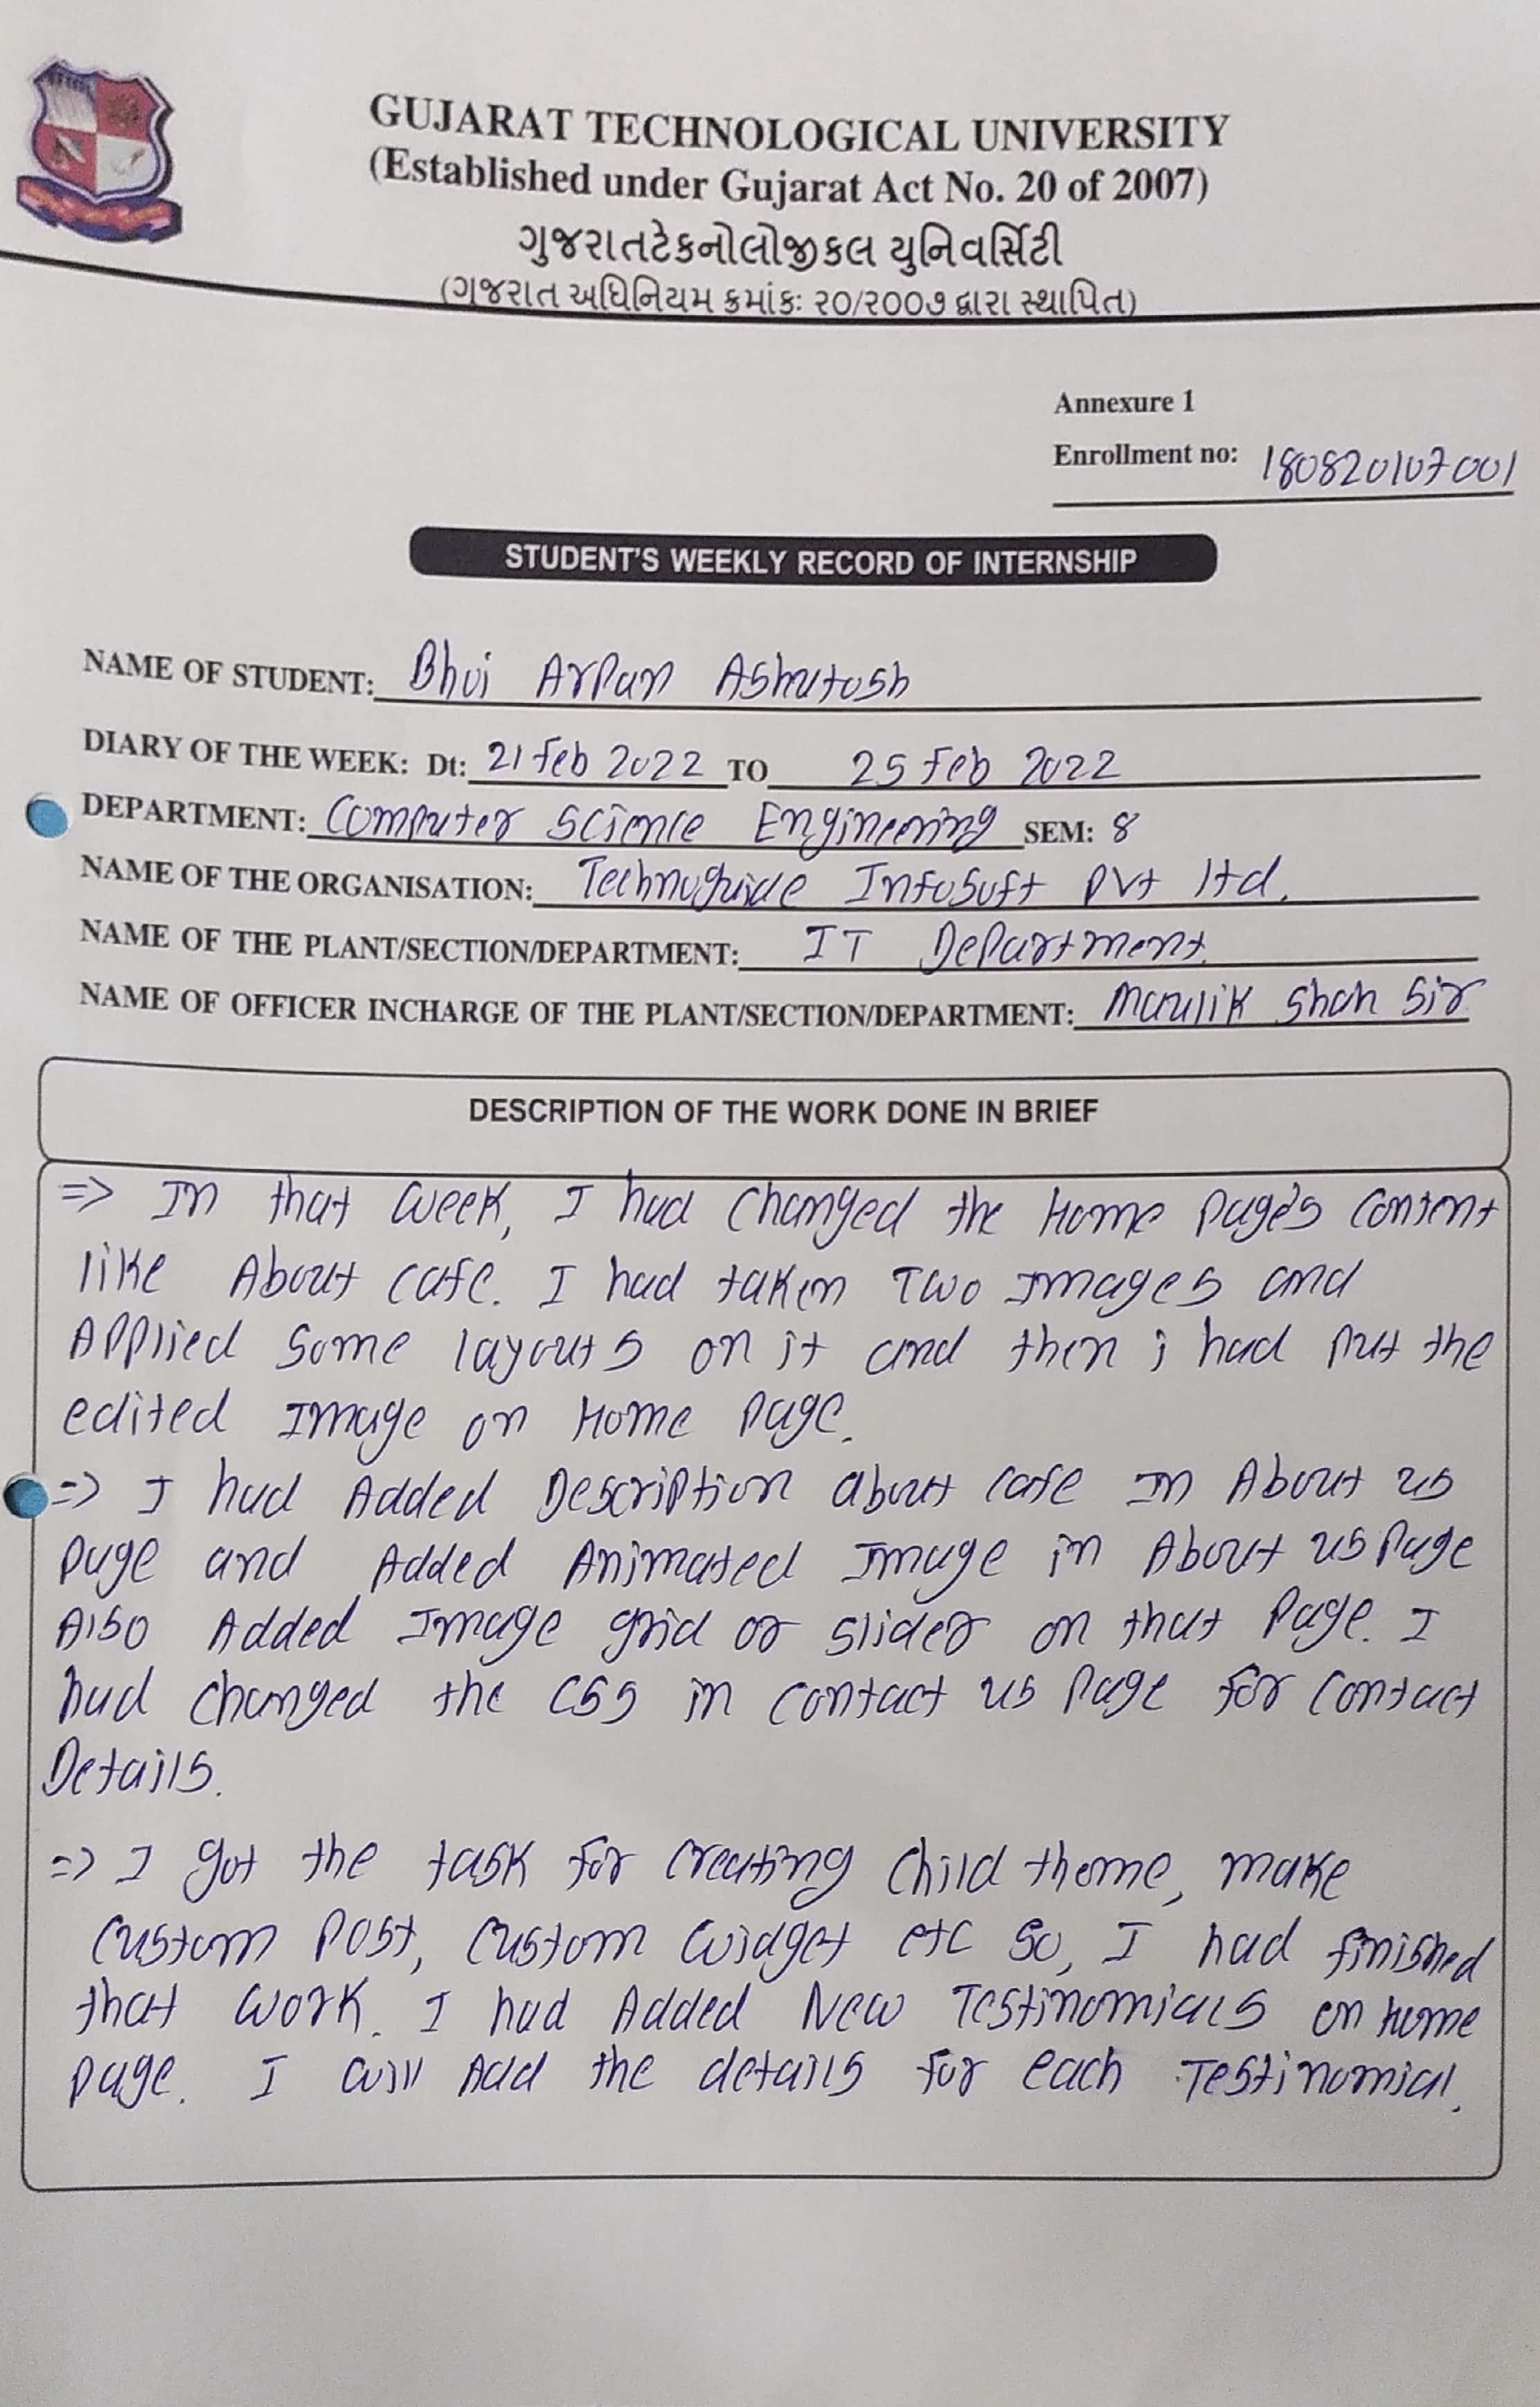 GUJARAT TECHNOLOGICAL UNIVERSITY
(Established under Gujarat Act No. 20 of 2007)
ગુજરાતટેકનોલોજીકલ યુનિવર્સિટી
(ગુજરાત અધિનિયમ ક્રમાંકઃ ૨૦/૨૦૦૭ દ્વારા સ્થાપિત)
Annexure 1
Enrollment no: 180820107001
STUDENT'S WEEKLY RECORD OF INTERNSHIP
NAME OF STUDENT: Bhoi Arpan Ashutosh
DIARY OF THE WEEK: Dt: 21 Feb 2022 TO 25 Feb 2022
DEPARTMENT: Computer Science Engineering SEM: 8
NAME OF THE ORGANISATION: Technoguide Infosoft Pvt ltd.
NAME OF THE PLANT/SECTION/DEPARTMENT: IT Department.
NAME OF OFFICER INCHARGE OF THE PLANT/SECTION/DEPARTMENT: Maulik Shah Sir
DESCRIPTION OF THE WORK DONE IN BRIEF
=> In that week, I had changed the Home page's content
like About cafe. I had taken Two Images and
Applied some layouts on it and then i had put the
edited Image on Home page.
=> I had Added Description about cafe In About us
page and Added Animated Image in About us Page
Also Added Image grid or slider on that Page. I
had changed the CSS in contact us Page for contact
Details.
=> I got the task for creating child theme, make
custom post, custom widget etc so, I had finished
that work. I had Added New Testinomials on home
page. I will Add the details for each Testinomial.